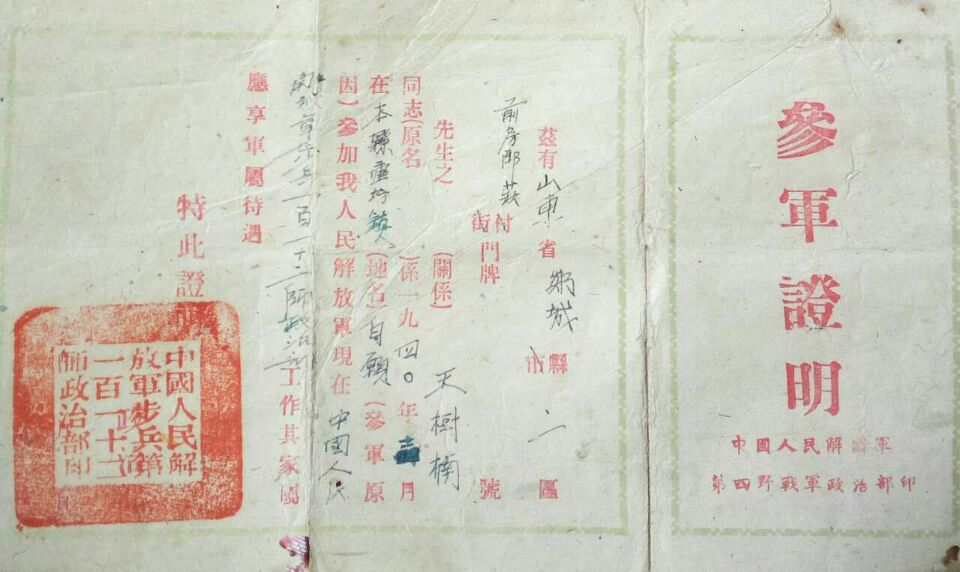 參軍證明
中國人民解放軍
第四野戰軍政治部印
茲有山東省郯城縣市二區
前房郡莊村街門牌號
先生之(關係)天樹楠
同志(原名)係一九四〇年月
在本縣重坊鎮(地名)自願(參軍原
因)參加我人民解放軍現在中國人民
解放軍步兵一百一十二師政治部工作其家屬
應享軍屬待遇
特此證
中國人民解
放軍步兵第
一百一十二
師政治部印